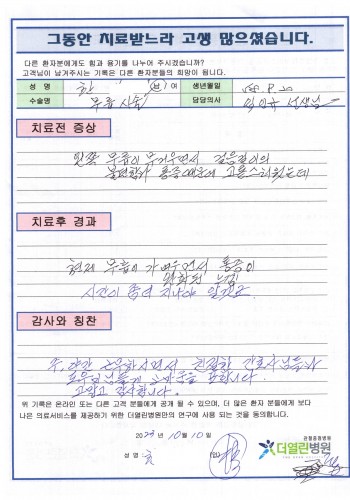 그동안 치료받느라 고생 많으셨습니다.
다른 환자분에게도 힘과 용기를 나누어 주시겠습니까?
고객님이 남겨주시는 기록은 다른 환자분들의 희망이 됩니다.
성 명 한 남 여 생년월일
수술명 무릎 시술 담당의사 선생님
치료전 증상
왼쪽 무릎이 무거우면서 걸음걸이의
불편함과 통증때문에 고통스러웠는데
치료후 경과
현재 무릎이 가벼우면서 통증이
약화된 느낌
시간이 좀더 지나야 알것같고
감사와 칭찬
주, 야간 근무하시면서 친절한 간호사님들과
고맙고 감사합니다.
위 기록은 온라인 또는 다른 고객 분들에게 공개 될 수 있으며, 더 많은 환자 분들에게 보다
나은 의료서비스를 제공하기 위한 더열린병원만의 연구에 사용 되는 것을 동의합니다.
2025년 10월 10일
성 명 : 한 (인)
관절종합병원
더열린병원